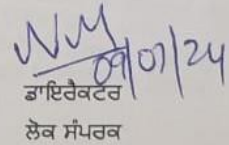 09/07/24
ਡਾਇਰੈਕਟਰ
ਲੋਕ ਸੰਪਰਕ